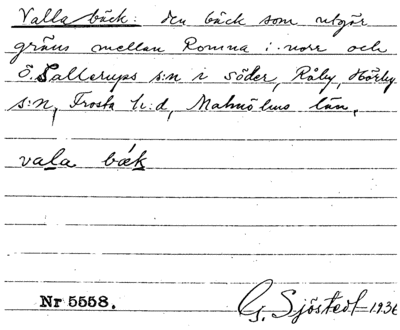 Valla bäck: den bäck som utgör
gräns mellan Romma i norr och
Ö. Sallerups s:n i söder, Råby, Hörby
s:n, Frosta h:d, Malmöhus län.
vala bæk
Nr 5558.
G. Sjöstedt 1936